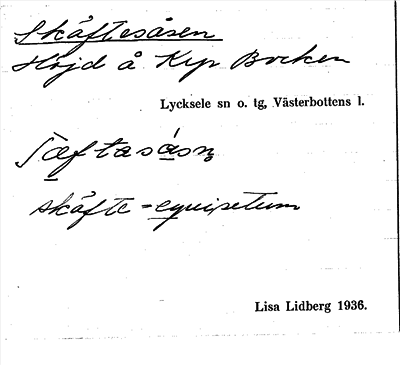 Skäftesåsen
Höjd å Krp Bocken
Lycksele sn o. tg, Västerbottens l.
ʃæftasåsn̥
skäfte - equisetum
Lisa Lidberg 1936.